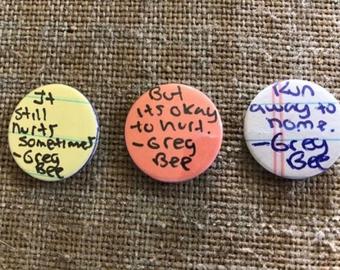 It
still
hurts
sometimes
-Greg
Bee
But
its okay
to hurt.
-Greg
Bee
Run
away to
home.
-Greg
Bee